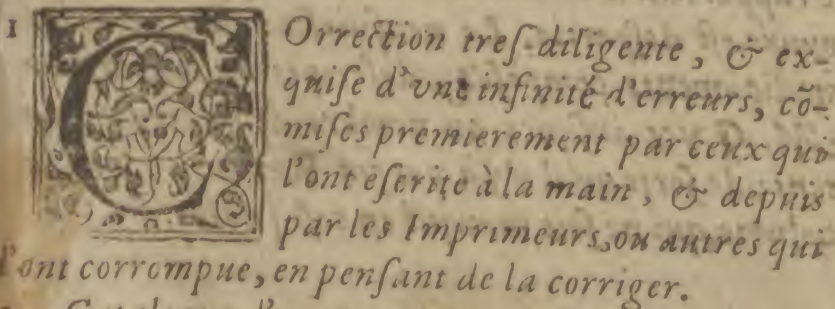 1 COrrection treſ-diligente, & ex-
quiſe d'vne infinité d'erreurs, cõ-
miſes premierement par ceux qui
l'ont eſcrite à la main, & depuis
par les Imprimeurs, ou autres qui
l'ont corrompue, en penſant de la corriger.